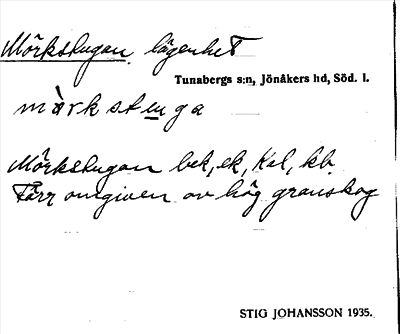 Mörkstugan, lägenhet
Tunabergs s:n, Jönåkers hd, Söd. l.
mò̀rkstuga
Mörkstugan bek, ek, Kal, kb.
Förr omgiven av hög granskog
STIG JOHANSSON 1935.